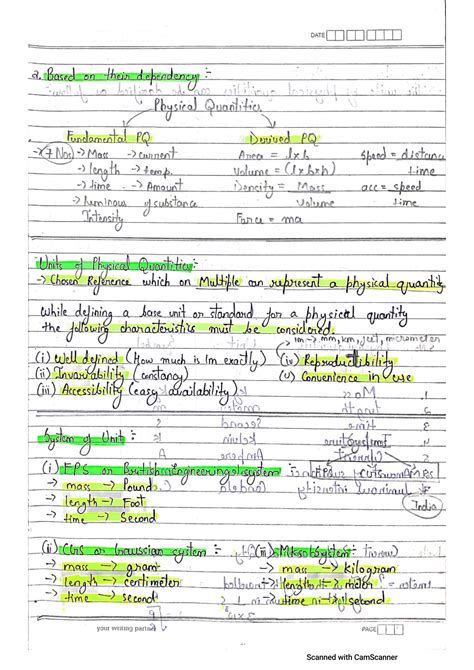 DATE
2. Based on their dependency :-
Physical Quantities
Fundamental PQ Derived PQ
7 Nos → Mass → current Area = l x b Speed = distance
→ length → temp. Volume = (l x b x h) time
→ time → Amount Density = Mass acc = speed
→ luminous of substance Volume time
Intensity Force = ma
Units of Physical Quantities :-
→ Chosen Reference which on Multiple can represent a physical quantity
While defining a base unit or standard for a physical quantity
the following characteristics must be considered.
1m → mm, km, feet, micrometer
(i) Well defined (How much is 1m exactly) (iv) Reproducibility
(ii) Invariability (constancy) (v) Convenience in use
(iii) Accessibility (easy availability)
System of Unit :-
(i) FPS or British Engineering system :-
→ mass → Pound
→ length → Foot India
→ time → Second
(ii) CGS or Gaussian system :- (iii) MKS System :-
→ mass → gram → mass → kilogram
→ length → centimeter → length → meter
→ time → second → time → second
your writing partner PAGE
Scanned with CamScanner